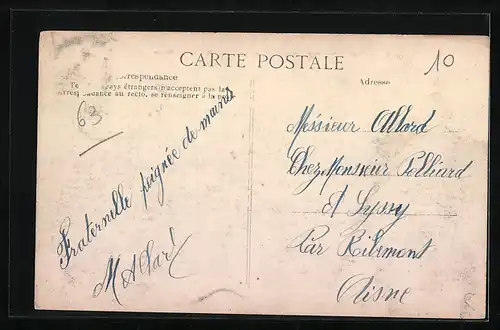 CARTE POSTALE
10
Correspondance
Adresse
pays étrangers n'acceptent pas la
correspondance au recto, se renseigner à la
63
Fraternelle poignée de mains
Messieur Allard
Chez Monsieur Pelliard
A Sissy
Par Ribemont
Aisne